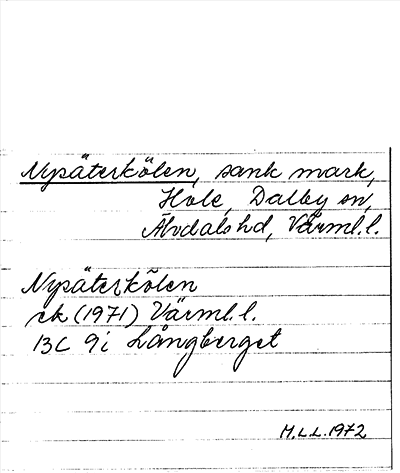 Nysäterkölen, sank mark,
Hole, Dalby sn,
Älvdals hd, Värml. l.
Nysäterkölen
ek (1971) Värml. l.
13C 9i Långberget
M.L.L. 1972